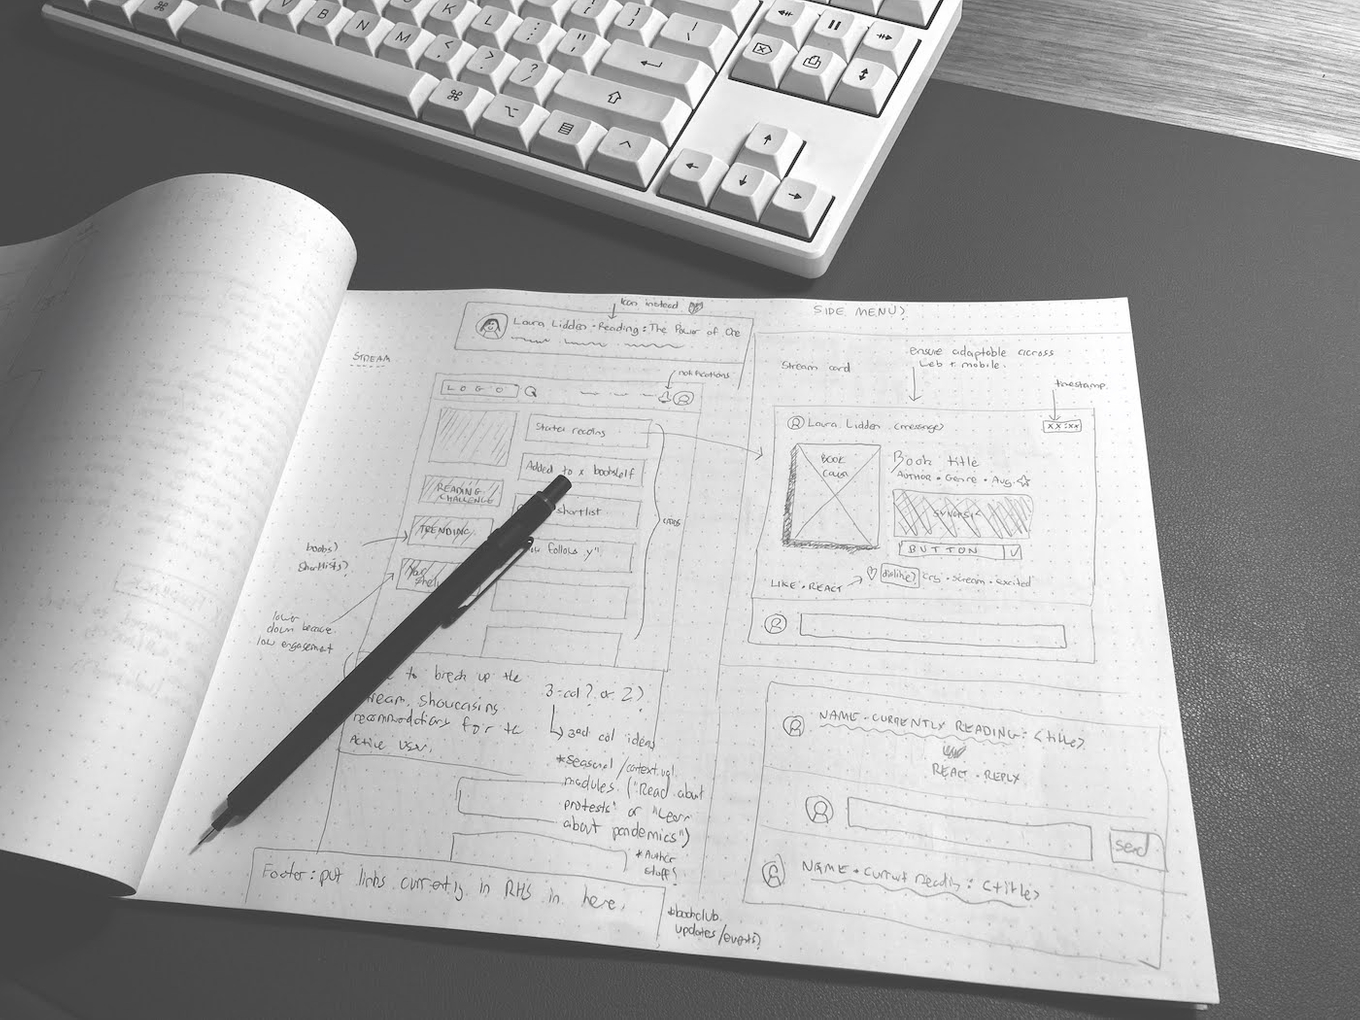 Icon instead
Laura Lidden • Reading: The Power of One
SIDE MENU?
STREAM
notifications
LOGO
Started reading
Added to x bookshelf
shortlist
follows y"
READING
CHALLENGE
TRENDING
Your
Shelf
books?
Shortlists?
lower
down because
low engagement
to break up the
stream, showcasing
recommendations for the
Active user.
3-col? or 2?
3rd col ideas
*Seasonal/contextual
modules ("Read about
protests" or "Learn
about pandemics")
*Author
stuff?
*bookclub
updates/events?
Footer: put links currently in RHS in here.
Stream card
ensure adaptable across
web + mobile.
timestamp
Laura Lidden <message>
xx:xx
BOOK
COVER
Book title
AUTHOR • Genre • Avg.
SYNOPSIS
BUTTON
LIKE • REACT
cry • scream • excited
NAME • CURRENTLY READING: <title>
REACT • REPLY
Send
NAME • Current reading: <title>